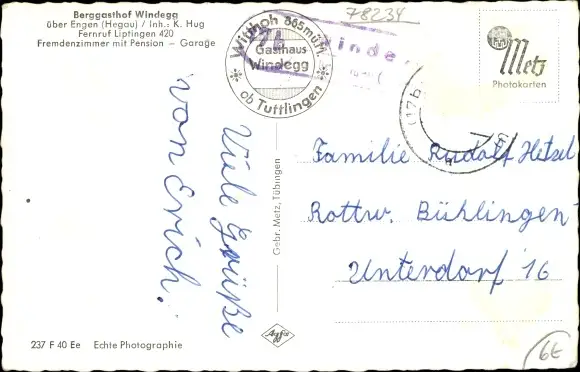 Berggasthof Windegg
über Engen (Hegau) / Inh.: K. Hug
Fernruf Liptingen 420
Fremdenzimmer mit Pension – Garage
Witthoh 865 m ü. M.
Gasthaus
Windegg
ob Tuttlingen
78234
Metz
Photokarten
(17b)
Viele Grüße
von Erich.
Gebr. Metz, Tübingen
Familie Rudolf Hetzel
Rottw. Bühlingen
Unterdorf 16
Agfa
237 F 40 Ee Echte Photographie
6E